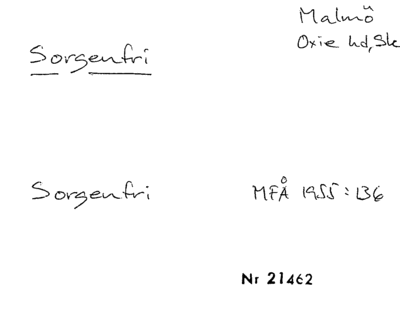 Malmö
Oxie hd, Sk
Sorgenfri
Sorgenfri MFÅ 1955:136
Nr 21462